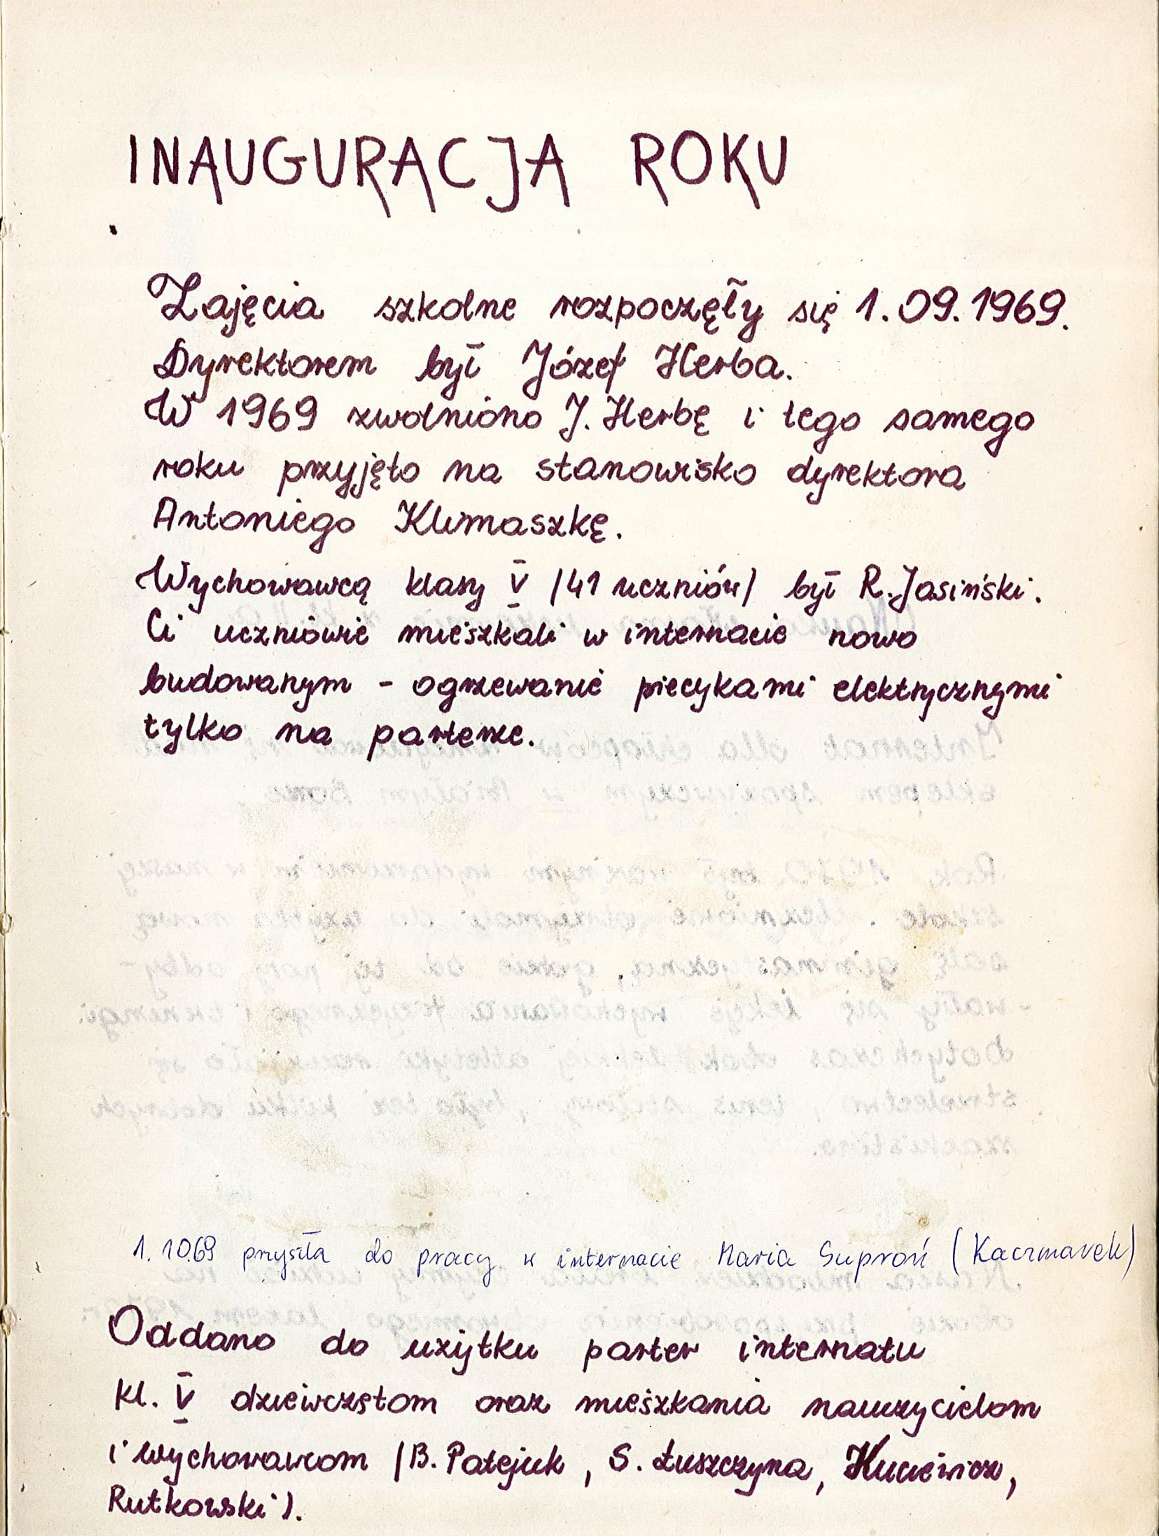 INAUGURACJA ROKU
Zajęcia szkolne rozpoczęły się 1.09.1969.
Dyrektorem był Józef Herba.
W 1969 zwolniono J. Herbę i tego samego
roku przyjęto na stanowisko dyrektora
Antoniego Klimaszkę.
Wychowawcą klasy V /41 uczniów/ był R. Jasiński.
Ci uczniowie mieszkali w internacie nowo
budowanym - ogrzewanie piecykami elektrycznymi
tylko na parterze.
1.10.69 przyszła do pracy w internacie Maria Suproń (Kaczmarek)
Oddano do użytku parter internatu
kl. V dziewczętom oraz mieszkania nauczycielom
i wychowawcom /B. Patejuk, S. Łuszczyna, Kuciewicz,
Rutkowski/.